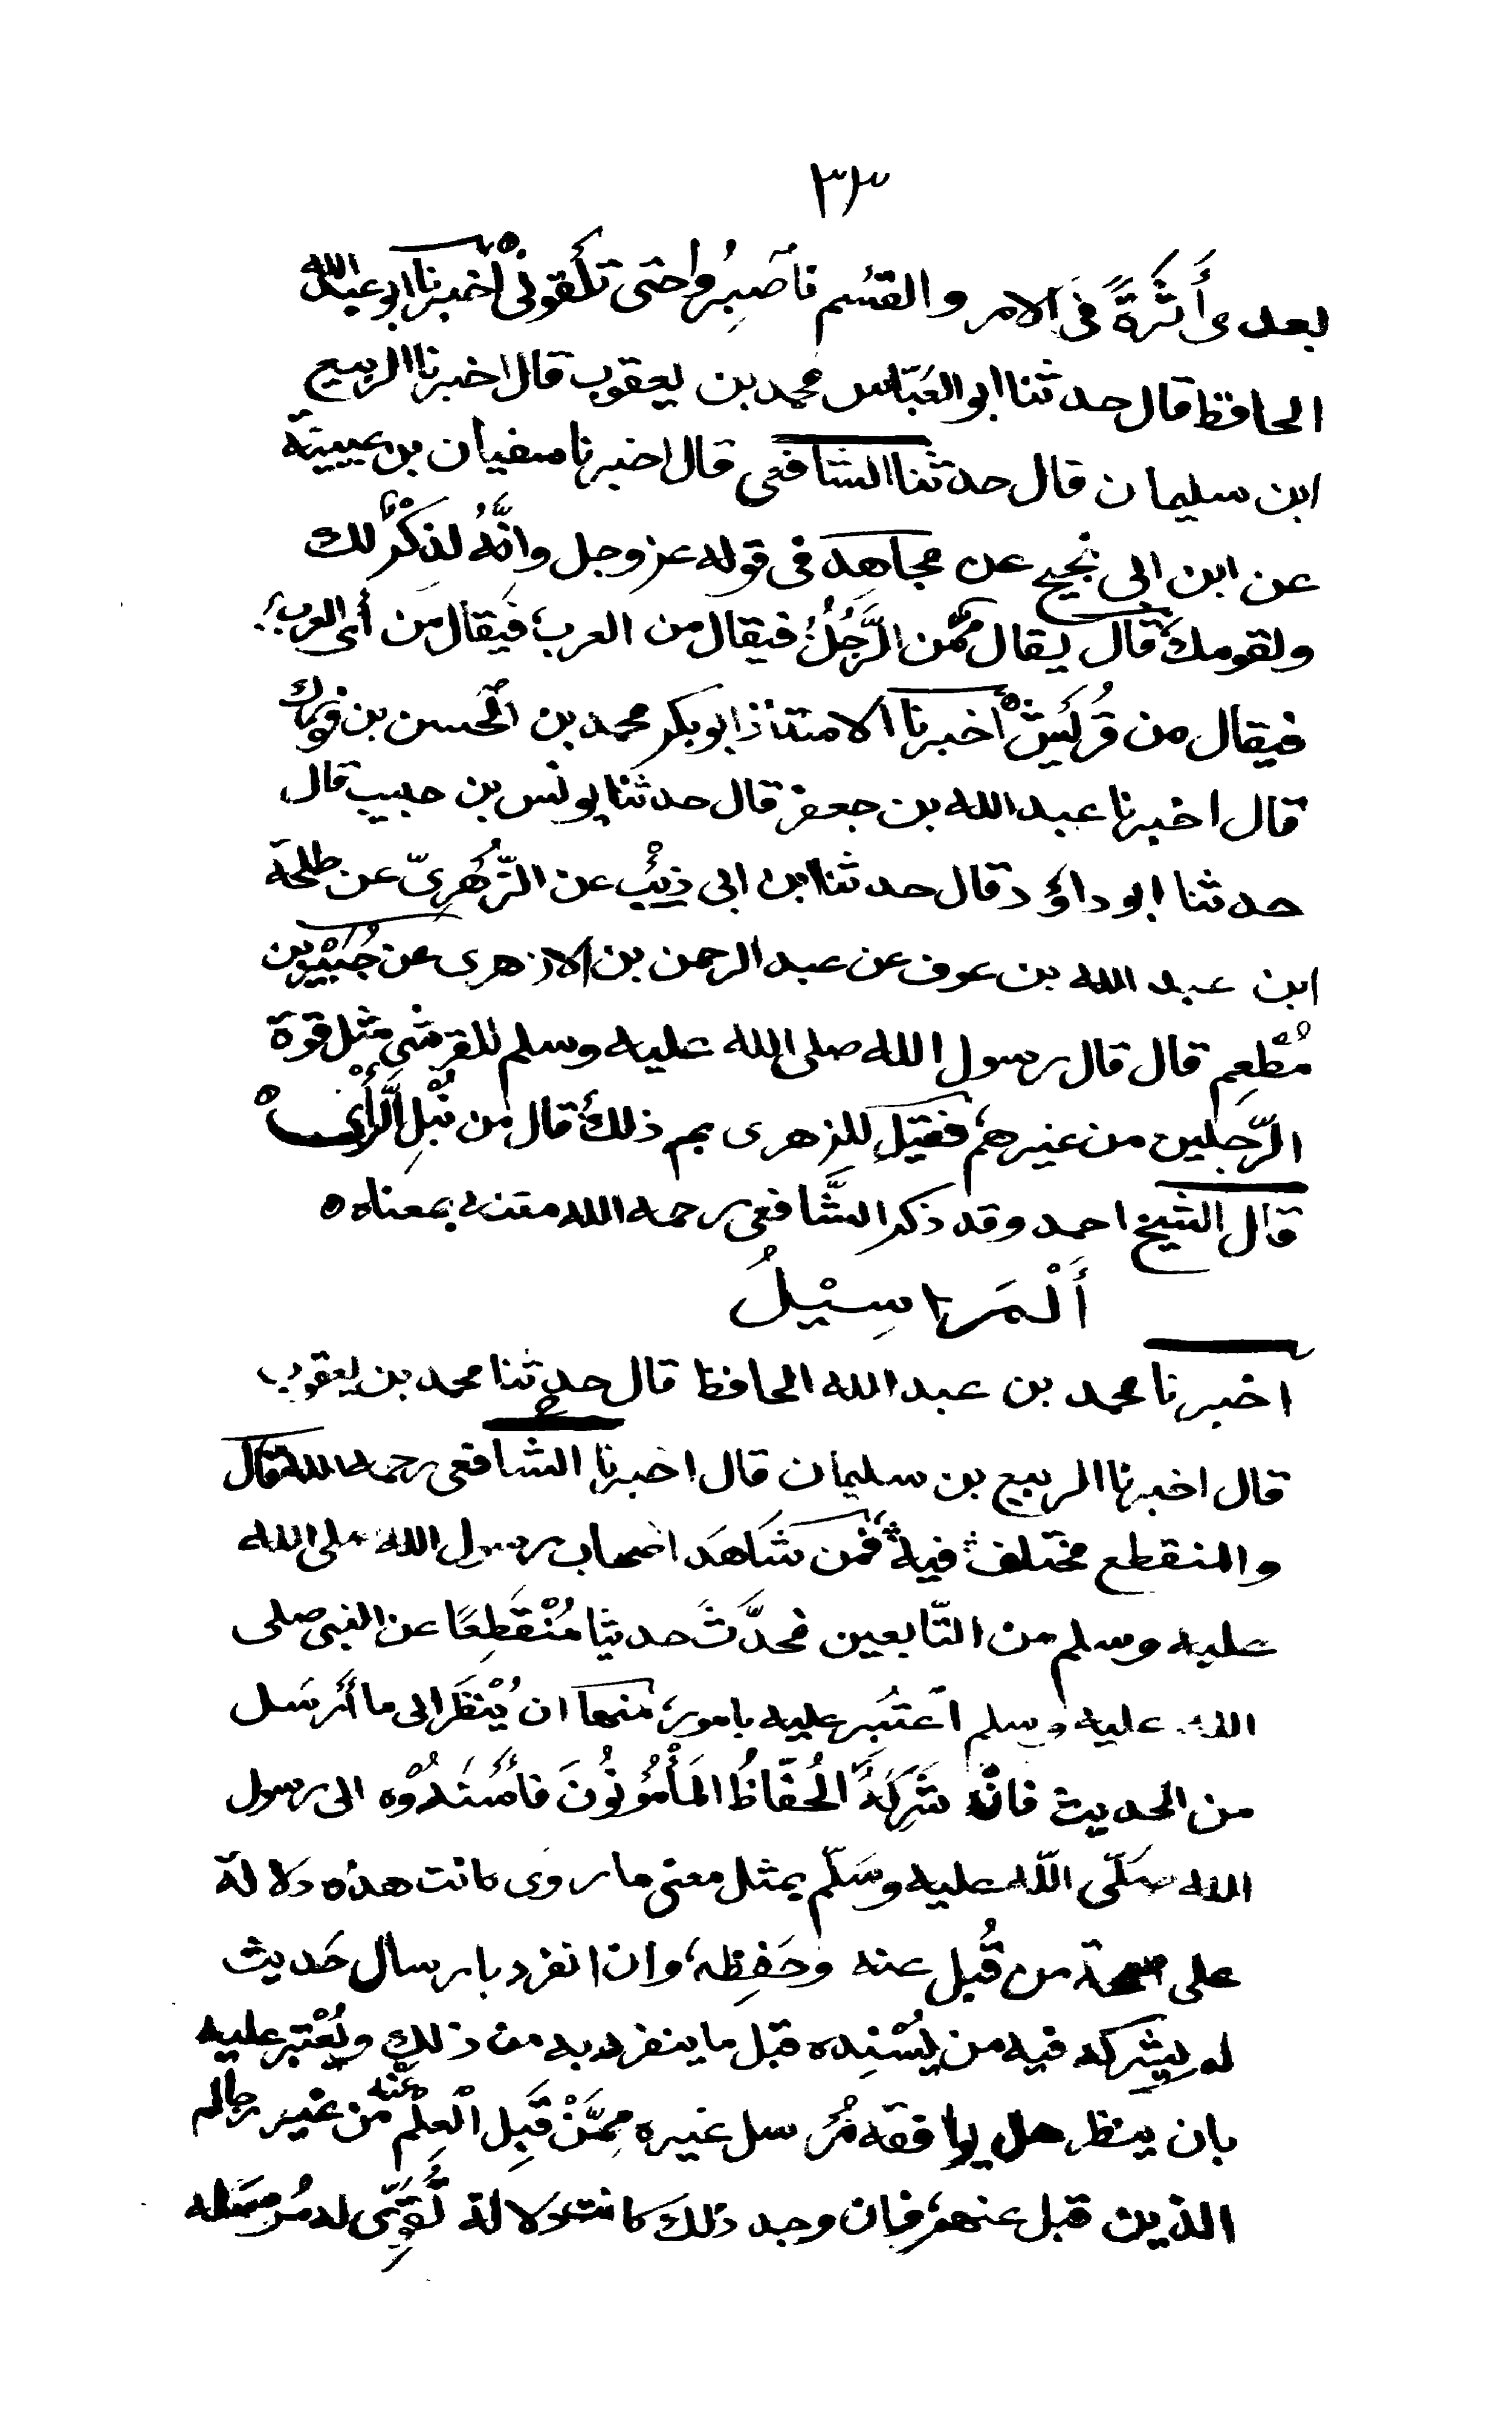 ٣٣
بعدى أَثَرَةً فى الامر والقسْم فاصبِرُوا حتى تلْقونى اخبرنا ابو عبدالله
الحافظ قال حدثنا ابو العَبّاس محمد بن يعقوب قال اخبرنا الربيع
ابن سليمان قال حدثنا الشافعى قال اخبرنا سفيان بن عيينة
عن ابن ابى نجيح عن مجاهد فى قوله عز وجل وانَّهُ لذكْرٌ لك
ولقومك قال يقال ممّن الرَّجُلُ؛ فيقال من العرب؛ فيقال من أى العرب؛
فيقال من قُريْشٍ ه اخبرنا الاستاذ ابو بكر محمد بن الحسن بن فورك
قال اخبرنا عبد الله بن جعفر قال حدثنا يونس بن حبيب قال
حدثنا ابو داؤد قال حدثنا ابن ابى ذِئْب عن الزُّهْرِىّ عن طلحة
ابن عبد الله بن عوف عن عبد الرحمن بن الازهرى عن جُبَيْر بن
مُطْعِم قال قال رسول الله صلى الله عليه وسلم للقرشى مثل قوة
الرّجلين من غيرهم، فقيل للزهرى بم ذلك قال من نُبْلِ الرَّأْىِ ه
قال الشيخ احمد وقد ذكر الشَّافعى رحمه الله متنه بمعناه ه
أَلْمَرَاسِيْلُ
اخبرنا محمد بن عبد الله الحافظ قال حدثنا محمد بن يعقوب
قال اخبرنا الربيع بن سليمان قال اخبرنا الشافعى رحمه الله قال
والمنقطع مختلف فيه فمن شَاهَدَ اصحاب رسول الله صلى الله
عليه وسلم من التّابعين فحدَّثَ حديثا مُنْقَطِعًا عن النبى صلى
الله عليه وسلم اعتُبر عليه بامور، منها ان يُنْظَر الى ما أرسَل
من الحديث فان شَرِكَهُ الحُفّاظُ المَأْمُوْنُونَ فاَسْنَدُوْه الى رسول
الله صَلّى اللّه عليه وسَلّم بمثل معنى ما روى كانت هذه دلالة
على صحة من قُبل عنه وحَفِظه، وان انفرد بارسال حَديث
لم يشركه فيه من يُسْنِده قبل ما ينفرد به من ذلك ويُعْتبر عليه
بان ينظر هل يوافقه مُرْسل غيره مِمَّنْ قَبِل الْعِلم عنه من غير رجاله
الذين قبل عنهم، فان وجد ذلك كانت دلالة تُقَوِّى له مُرْسَله